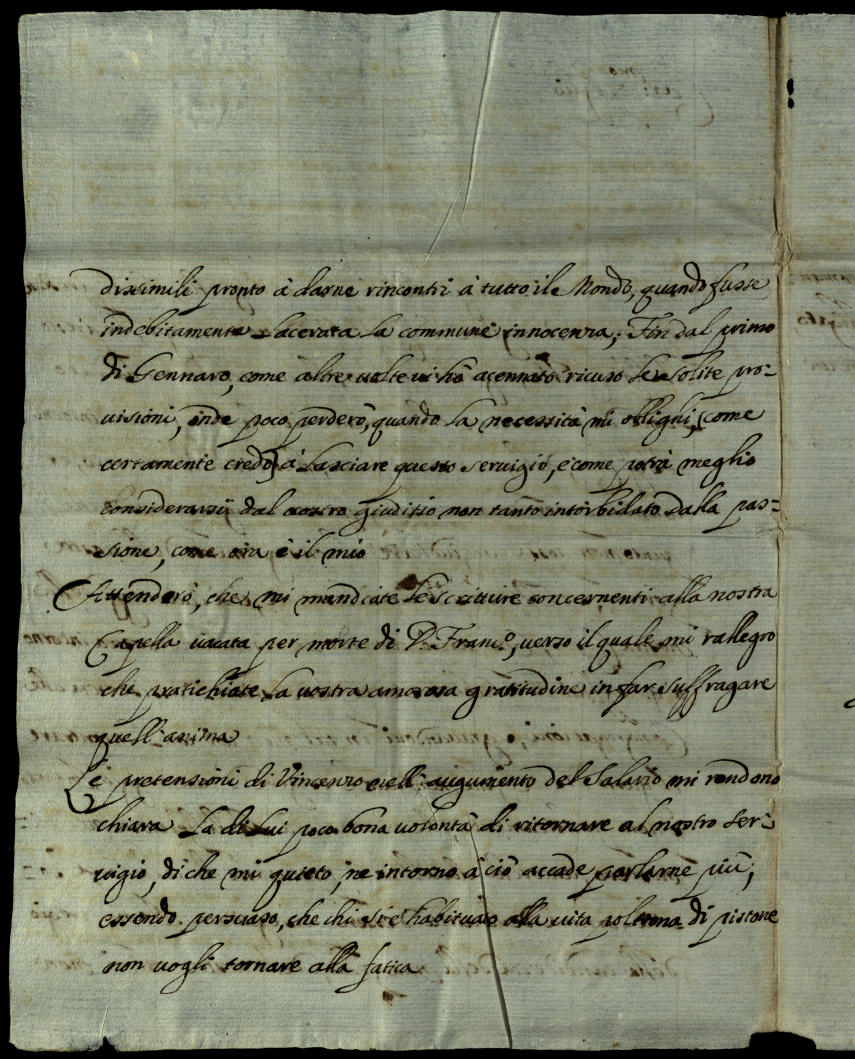 dissimili pronto à darne rincontri à tutto il Mondo, quando fusse
indebitamente lacerata la commune innocenza; Fin dal primo
di Gennaro, come altre volte vi hò acennato ricuso le solite pro=
uisioni, onde poco perderò, quando la necessità mi obblighi, (come
certamente credo) à lasciare questo seruigio, e come potrà meglio
considerarsi dal vostro giuditio non tanto intorbidato dalla pas=
sione, come ora è il mio
Attenderò, che mi mandiate le scritture concernenti alla nostra
Capella uacata per morte di D. Franc.o, uerso il quale mi rallegro
che pratichiate la uostra amorosa gratitudine in far suffragare
quell'anima
Le pretensioni di Vincenzo nell'augumento del Salario mi rendono
chiara la di lui poco bona uolontà di ritornare al nostro ser=
uigio, di che mi quieto, ne intorno à ciò accade parlarne più,
essendo persuaso, che chi si è habituato alla uita poltrona di
non uogli tornare alla fatica